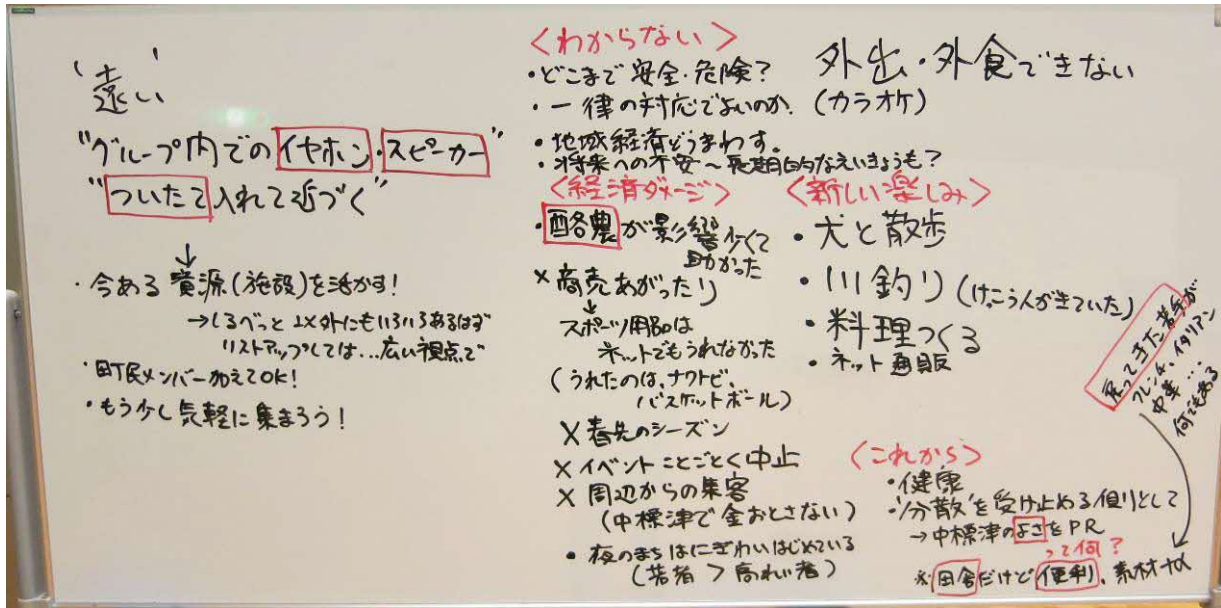 ‘遠い’
“グループ内でのイヤホン・スピーカー”
“ついたて入れて近づく”
↓
・今ある資源(施設)を活かす!
→しるべっと以外にもいろいろあるはず
リストアップしては…広い視点で
・町民メンバー加えてOK!
・もう少し気軽に集まろう!
<わからない>
・どこまで安全・危険?
・一律の対応でよいのか。
・地域経済どうまわす。
・将来への不安〜長期的なえいきょうも?
外出・外食できない
(カラオケ)
<経済ダメージ>
・酪農が影響少くて
助かった
×商売あがったり
↓
スポーツ用品は
ネットでもうれなかった
(うれたのは、ナワトビ、
バスケットボール)
×春先のシーズン
×イベントことごとく中止
×周辺からの集客
(中標津で金おとさない)
・夜のまちはにぎわいはじめている
(若者 > 高れい者)
<新しい楽しみ>
・犬と散歩
・川釣り(けっこう人がきていた)
・料理つくる
・ネット通販
戻ってきた若手が
フレンチ、イタリアン
中華…
何でもある
<これから>
・健康
・‘分散’を受け止める側として
→中標津のよさをPR
って何?
※田舎だけど便利、素材